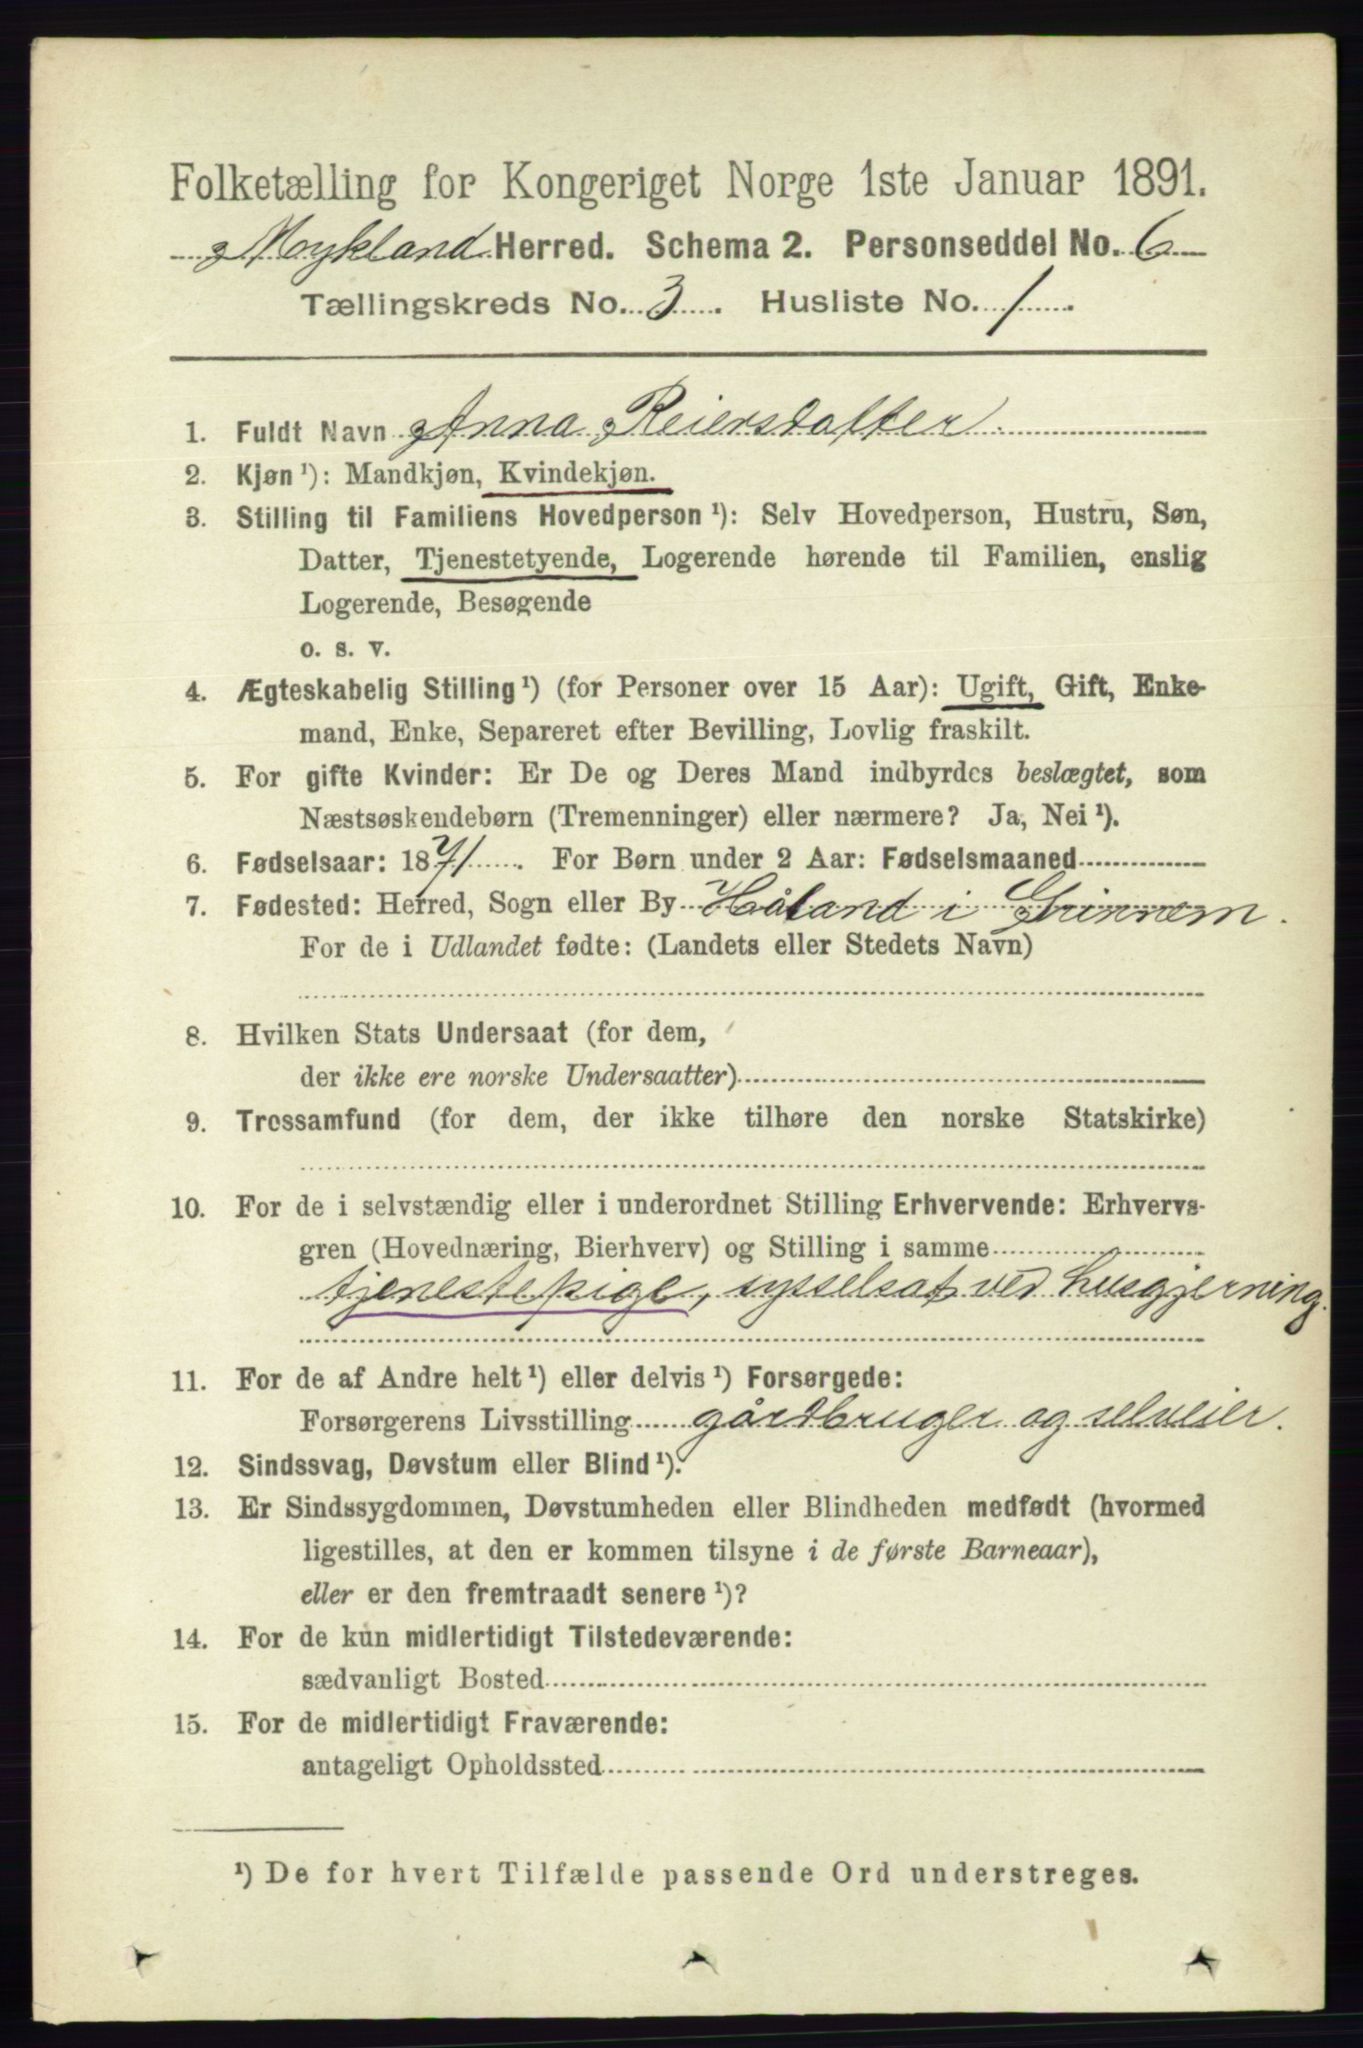 Folketælling for Kongeriget Norge 1ste Januar 1891.
Mykland Herred. Schema 2. Personseddel No. 6
Tællingskreds No. 3. Husliste No. 1.
1. Fuldt Navn Anna Reiersdatter.
2. Kjøn¹): Mandkjøn, Kvindekjøn.
3. Stilling til Familiens Hovedperson¹): Selv Hovedperson, Hustru, Søn,
Datter, Tjenestetyende, Logerende hørende til Familien, enslig
Logerende, Besøgende
o. s. v.
4. Ægteskabelig Stilling¹) (for Personer over 15 Aar): Ugift, Gift, Enke-
mand, Enke, Separeret efter Bevilling, Lovlig fraskilt.
5. For gifte Kvinder: Er De og Deres Mand indbyrdes beslægtet, som
Næstsøskendebørn (Tremenninger) eller nærmere? Ja, Nei¹).
6. Fødselsaar: 1871. For Børn under 2 Aar: Fødselsmaaned
7. Fødested: Herred, Sogn eller By Håland i
For de i Udlandet fødte: (Landets eller Stedets Navn)
8. Hvilken Stats Undersaat (for dem,
der ikke ere norske Undersaatter)
9. Trossamfund (for dem, der ikke tilhøre den norske Statskirke)
10. For de i selvstændig eller i underordnet Stilling Erhvervende: Erhvervs-
gren (Hovednæring, Bierhverv) og Stilling i samme
tjenestepige, sysselsat ved husgjerning.
11. For de af Andre helt¹) eller delvis¹) Forsørgede:
Forsørgerens Livsstilling gårdbruger og selveier.
12. Sindssvag, Døvstum eller Blind¹).
13. Er Sindssygdommen, Døvstumheden eller Blindheden medfødt (hvormed
ligestilles, at den er kommen tilsyne i de første Barneaar),
eller er den fremtraadt senere¹)?
14. For de kun midlertidigt Tilstedeværende:
sædvanligt Bosted
15. For de midlertidigt Fraværende:
antageligt Opholdssted
¹) De for hvert Tilfælde passende Ord understreges.